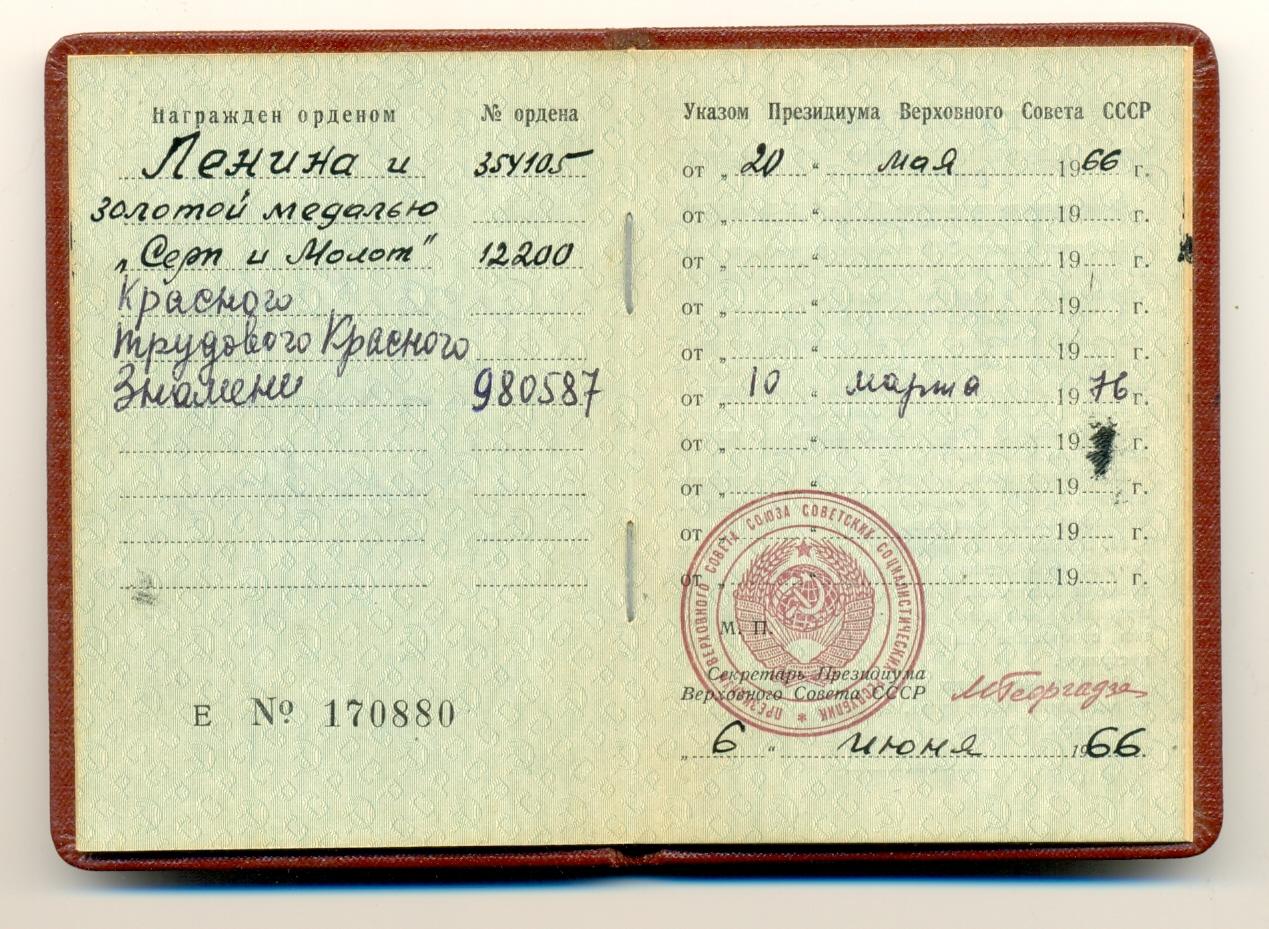 Награжден орденом № ордена
Ленина и 354105
золотой медалью
„Серп и Молот" 12200
Красного
Трудового Красного
Знамени 980587
Е № 170880
Указом Президиума Верховного Совета СССР
от „20" мая 1966 г.
от „ " 19 г.
от „ " 19 г.
от „ " 19 г.
от „ " 19 г.
от „10" марта 1976 г.
от „ " 19 г.
от „ " 19 г.
от „ " 19 г.
от „ " 19 г.
ПРЕЗИДИУМ ВЕРХОВНОГО СОВЕТА СОЮЗА СОВЕТСКИХ СОЦИАЛИСТИЧЕСКИХ РЕСПУБЛИК
М. П.
Секретарь Президиума
Верховного Совета СССР МГеоргадзе
„6" июня 1966.